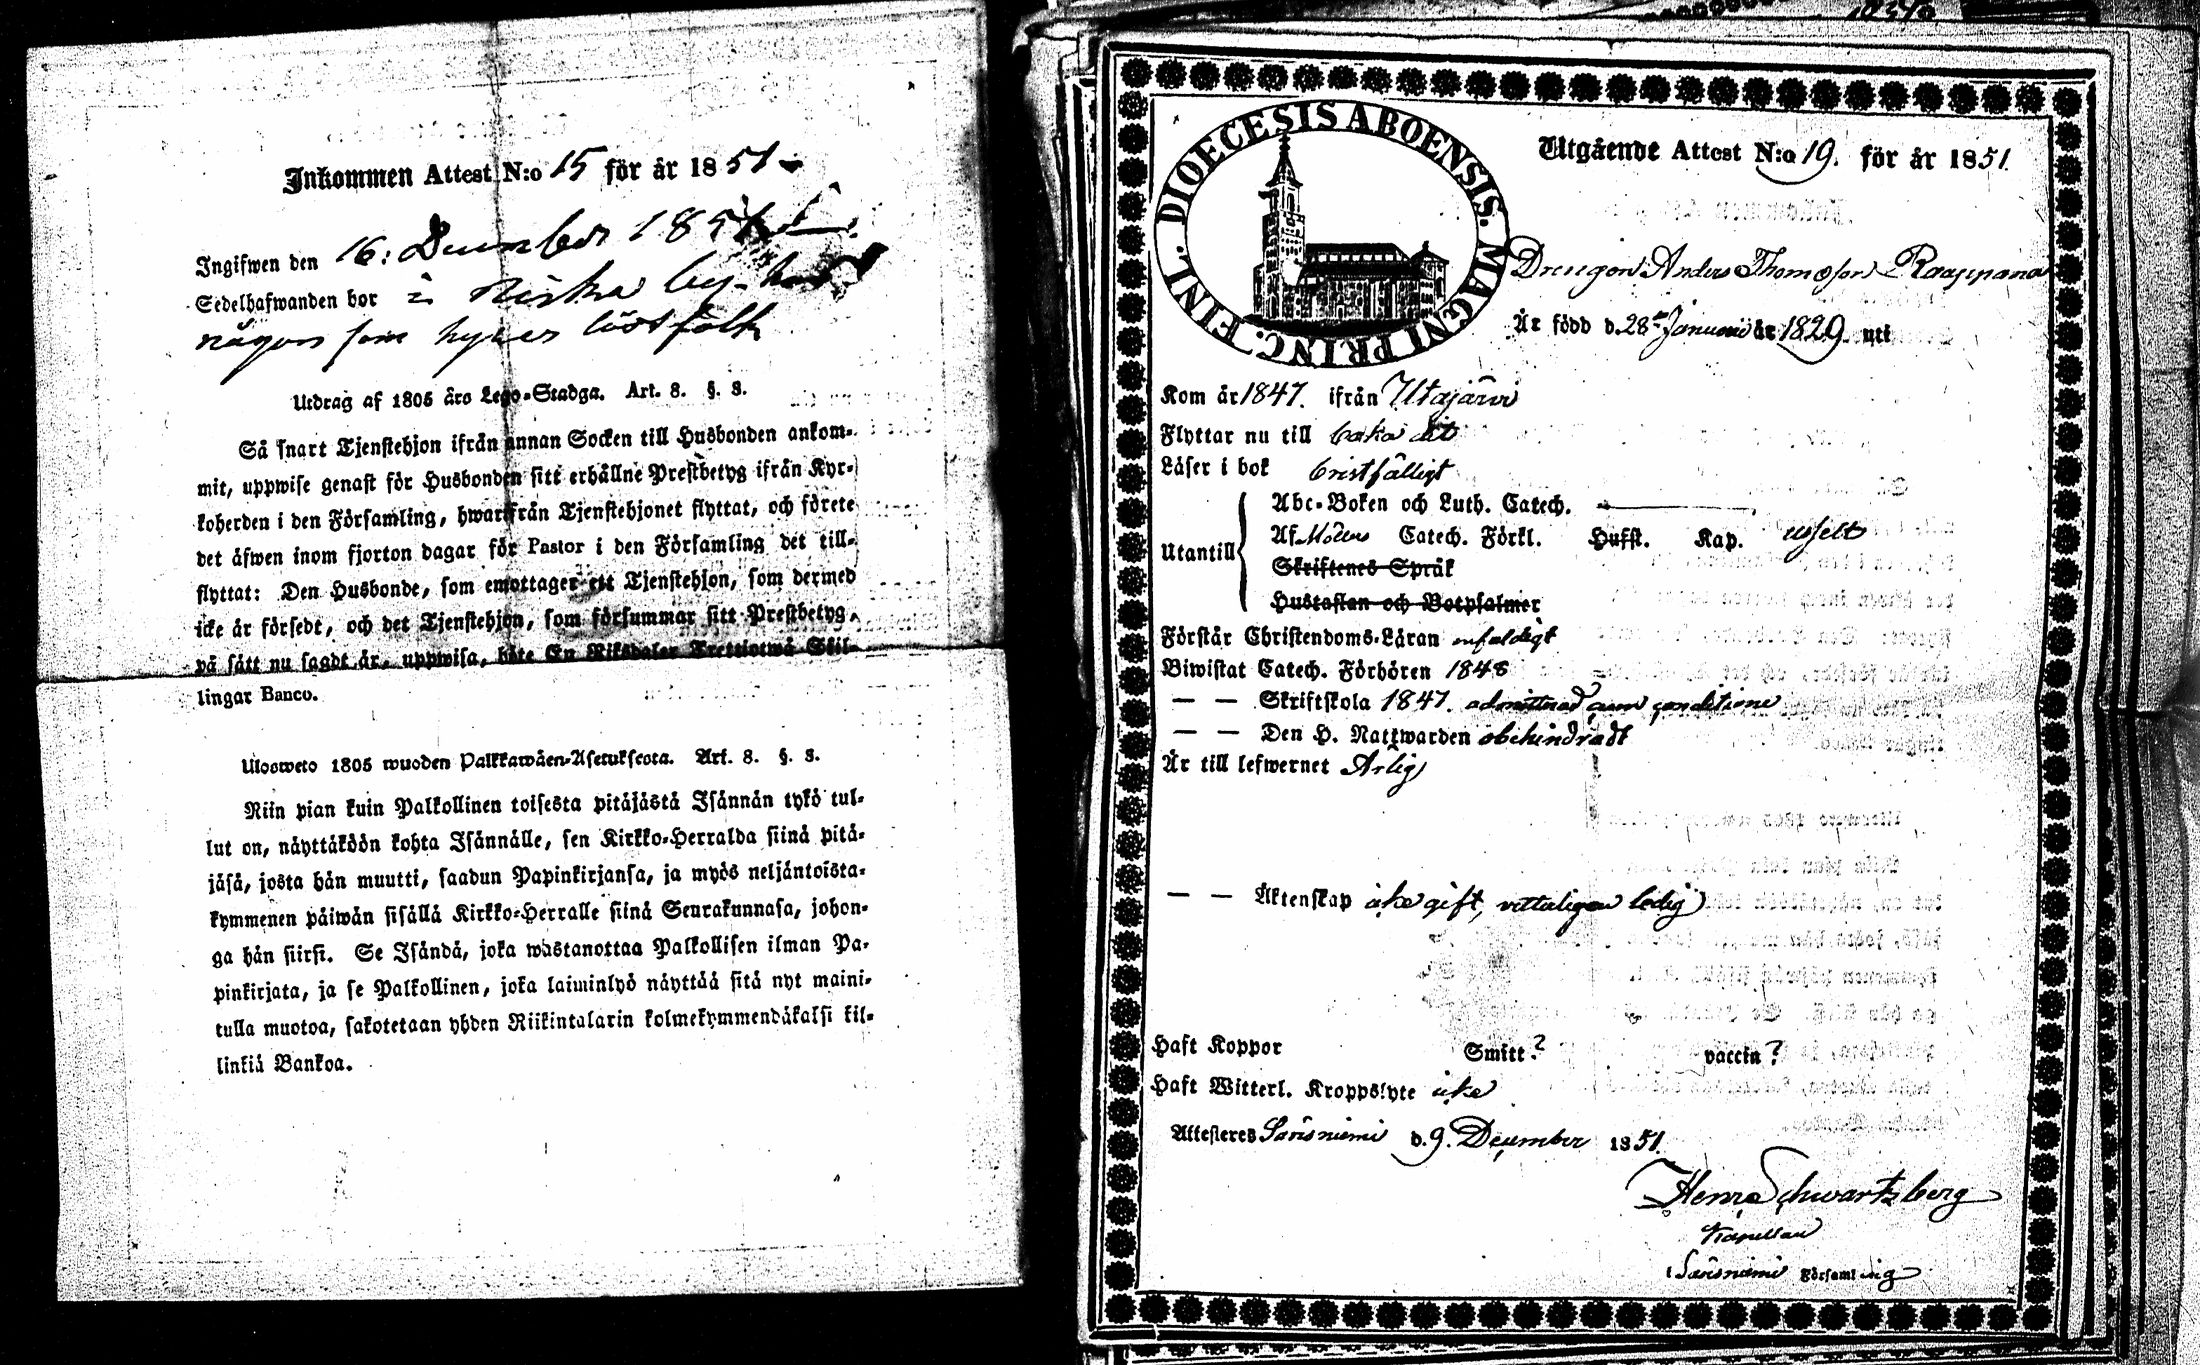 Inkommen Attest N:o 15 för år 1851
Ingifwen den 16: December 1851
Sedelhafwanden bor i Niska by hos
någon som hyser löst folk
Utdrag af 1805 års Lego-Stadga. Art. 8. §. 3.
Så snart Tjenstehjon ifrån annan Socken till Husbonden ankom-
mit, uppwise genast för Husbonden sitt erhållne Prestbetyg ifrån Kyr-
koherden i den Församling, hwarifrån Tjenstehjonet flyttat, och förete
det äfwen inom fjorton dagar för Pastor i den Församling det till-
flyttat: Den Husbonde, som emottager ett Tjenstehjon, som dermed
icke är försedt, och det Tjenstehjon, som försummar sitt Prestbetyg,
på sätt nu sagdt är, uppwisa, böte En Riksdaler Trettiotwå Skil-
lingar Banco.
Ulosweto 1805 wuoden Palkkawäen-Asetuksesta. Art. 8. §. 3.
Niin pian kuin Palkollinen toisesta pitäjästä Isännän tykö tul-
lut on, näyttäköön kohta Isännälle, sen Kirkko-Herralda siinä pitä-
jäsä, josta hän muutti, saadun Papinkirjansa, ja myös neljäntoista-
kymmenen päiwän sisällä Kirkko-Herralle siinä Seurakunnasa, johon-
ga hän siirsi. Se Isändä, joka wastanottaa Palkollisen ilman Pa-
pinkirjata, ja se Palkollinen, joka laiminlyö näyttää sitä nyt maini-
tulla muotoa, sakotetaan yhden Riikintalarin kolmekymmendäkaksi kil-
linkiä Bankoa.
DIOECESIS ABOENSIS. MAGNI PRINC. FINL.
Utgående Attest N:o 19. för år 1851.
Drengen Anders Thomsson Raappana
Är född d. 28 Januari år 1829. uti
Kom år 1847. ifrån Utajärvi
Flyttar nu till baka dit
Läser i bok bristfälligt
Abc-Boken och Luth. Catech.
Utantill Af Möllers Catech. Förkl. Husft. Kap. uselt
Skriftenes Språk
Hustaflan och Botpsalmer
Förstår Christendoms-Läran enfaldigt
Biwistat Catech. Förhören 1848
— — Skriftskola 1847. admitterad cum conditione
— — Den H. Nattwarden obehindradt
Är till lefwernet Ärlig
— — Äktenskap icke gift, vitterligen ledig
Haft Koppor Smitt.? vaccin?
Haft Witterl. Kroppslyte icke
Attesteres Säräisniemi d. 9. December 1851.
Henr. Schwartzberg
Kapellan
i Säräisniemi Församling